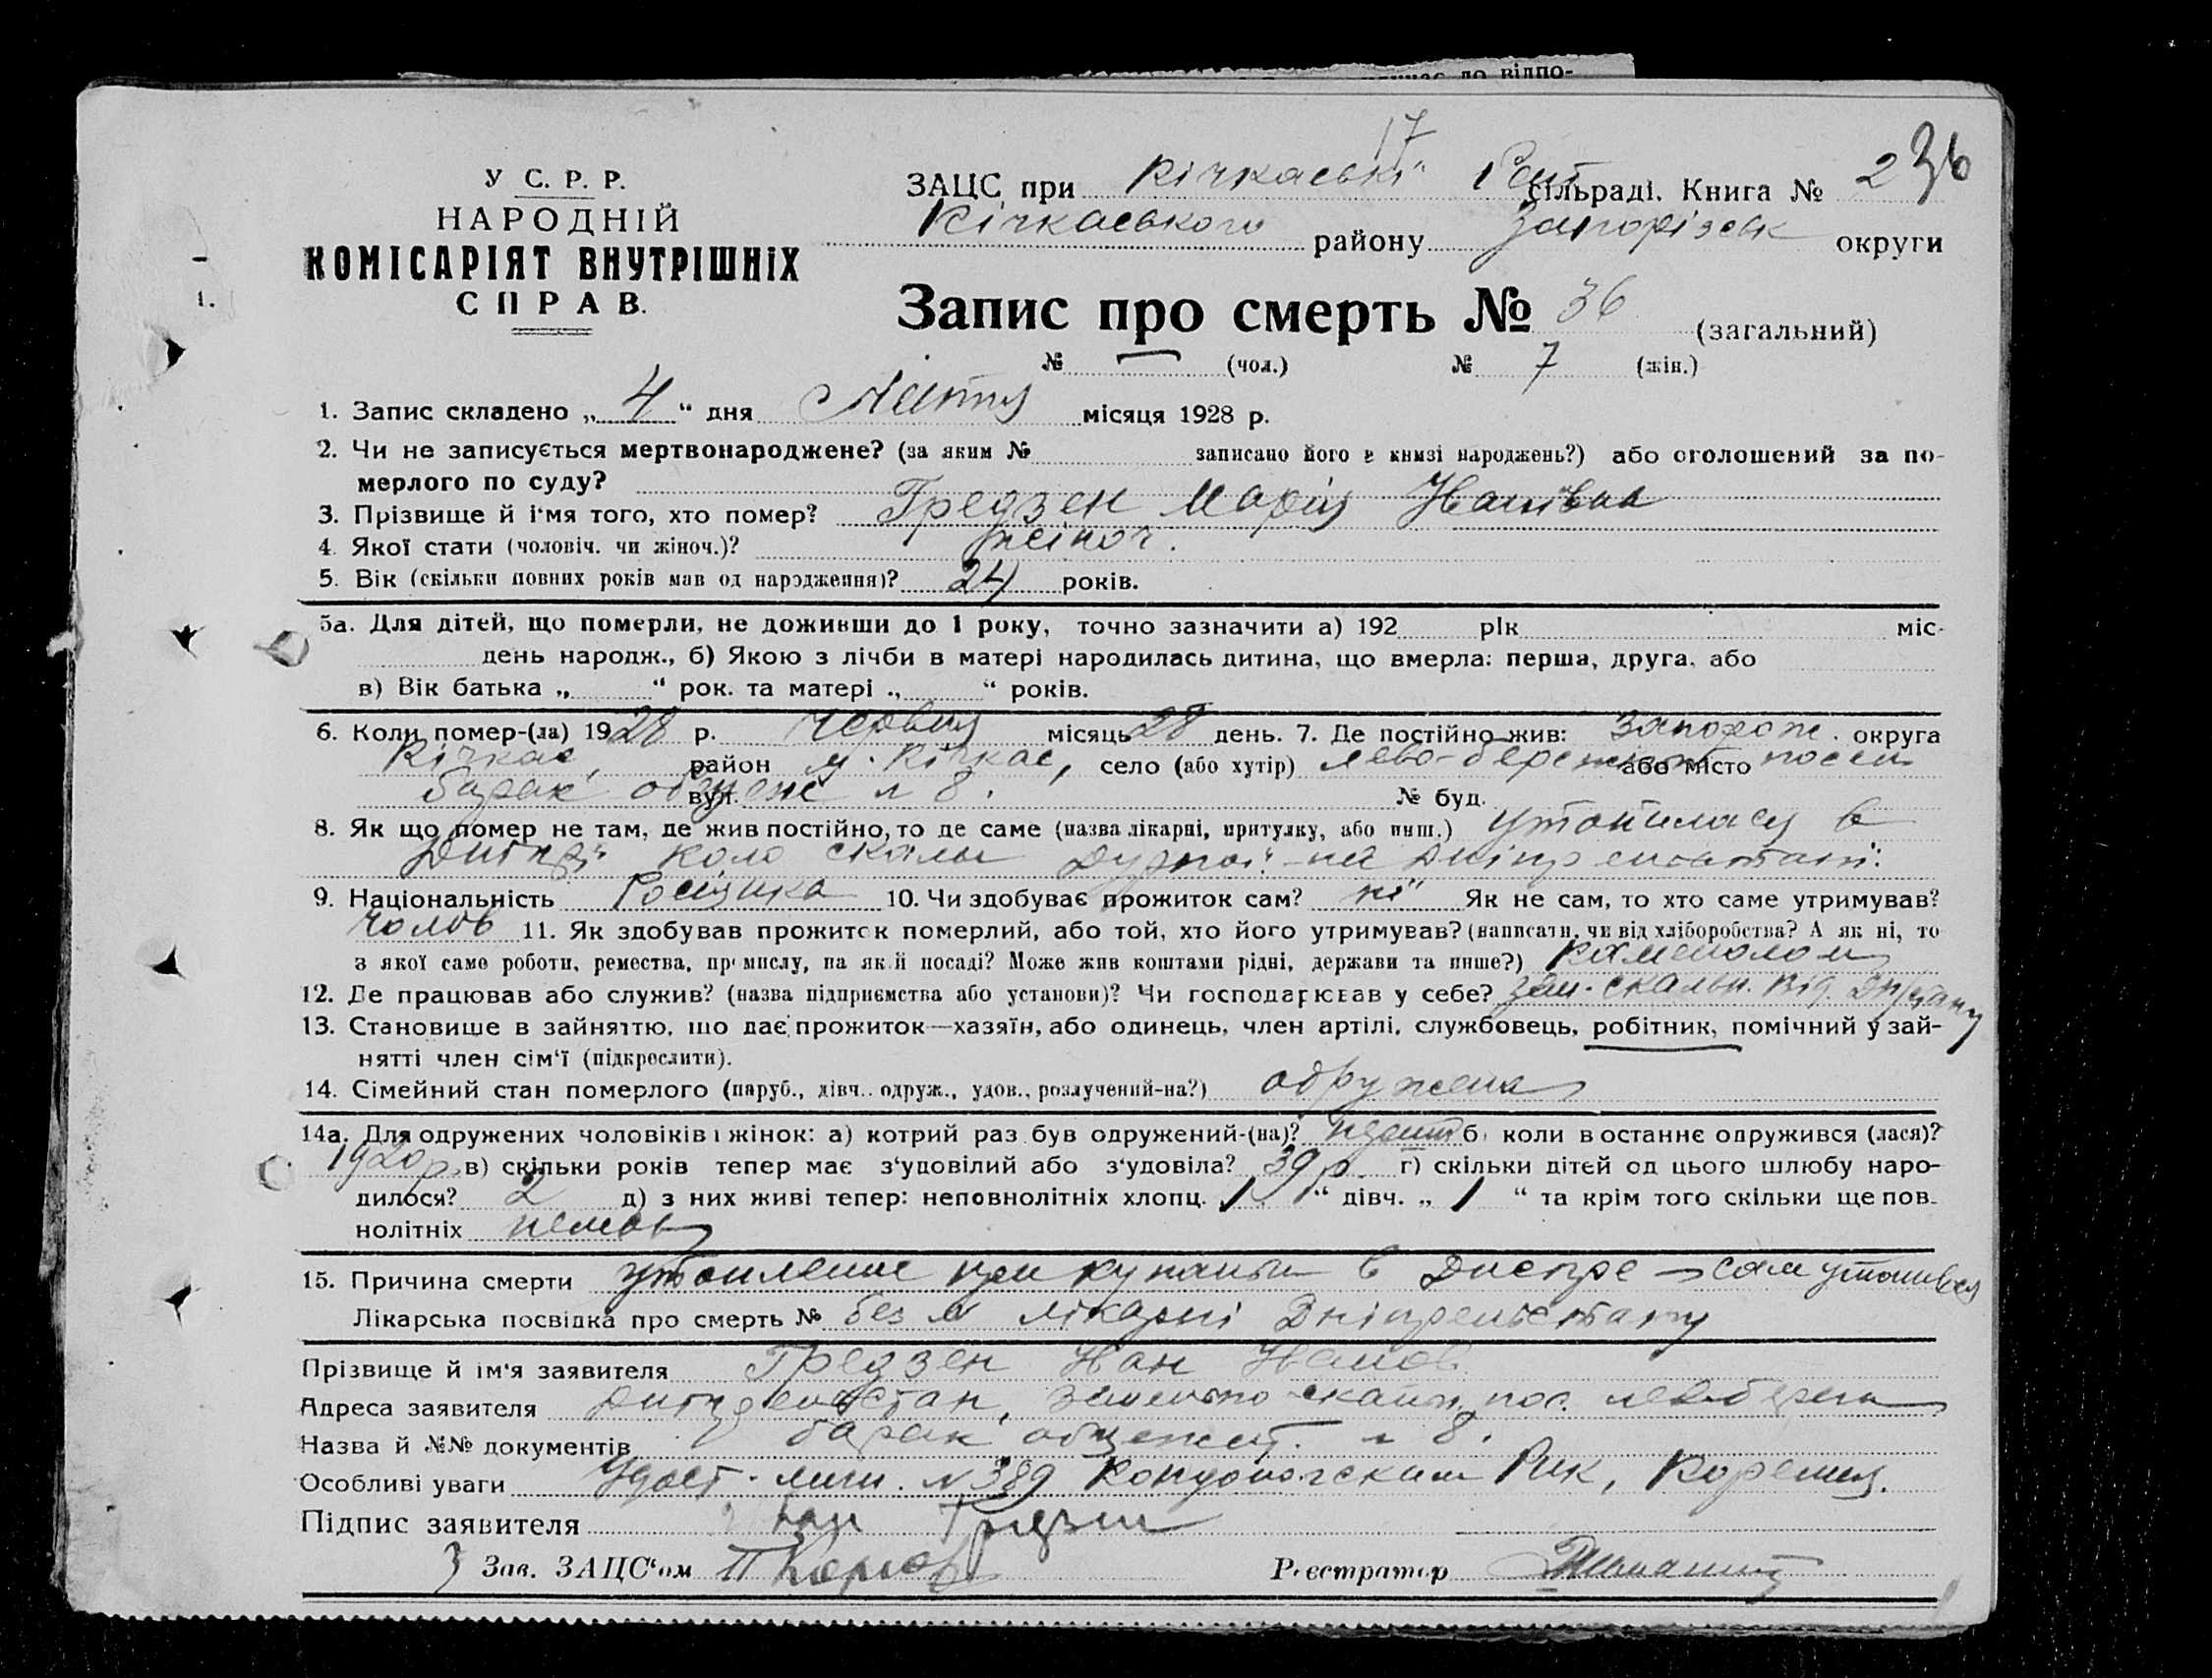 до відпо-
17
236
У С. Р. Р.
НАРОДНІЙ
КОМІСАРІЯТ ВНУТРІШНІХ
СПРАВ.
ЗАЦС при Кічкаській сільраді. Книга № 2
Кічкаського району Запорізьк округи
Запис про смерть № 36 (загальний)
№ — (чол.) № 7 (жін.)
1. Запис складено „ 4 “ дня Липня місяця 1928 р.
2. Чи не записується мертвонароджене? (за яким № записано його в книзі народжень?) або оголошений за по-
мерлого по суду?
3. Прізвище й ім'я того, хто помер? Гредзен Марія Іванівна
4. Якої стати (чоловіч. чи жіноч.)? жіноч.
5. Вік (скільки повних років мав од народження)? 24 років.
5а. Для дітей, що померли, не доживши до 1 року, точно зазначити а) 192 рік міс-
день народж., б) Якою з лічби в матері народилась дитина, що вмерла: перша, друга, або
в) Вік батька „ “ рок. та матері „ “ років.
6. Коли помер-(ла) 1928 р. Червня місяць 28 день. 7. Де постійно жив: Запорож. округа
Кічкас, район м. Кічкас, село (або хутір) лево-бережн або місто посел
барак общеж вул. № 8. № буд.
8. Як що помер не там, де жив постійно, то де саме (назва лікарні, притулку, або инш.) утопилася в
Дніпрі коло скали Дурної на Дніпрельстані
9. Національність Росіянка 10. Чи здобуває прожиток сам? ні Як не сам, то хто саме утримував?
чолов 11. Як здобував прожиток померлий, або той, хто його утримував? (написати, чи від хліборобства? А як ні, то
з якої саме роботи, ремества, промислу, на якій посаді? Може жив коштами рідні, держави та инше?) каменолом
12. Де працював або служив? (назва підприємства або установи)? Чи господарював у себе? зем. скальн. від.
13. Становище в зайняттю, що дає прожиток—хазяїн, або одинець, член артілі, службовець, робітник, помічний у зай-
нятті член сім'ї (підкреслити).
14. Сімейний стан померлого (паруб., дівч.. одруж., удов., розлучений-на?) одружена
14а. Для одружених чоловіків і жінок: а) котрий раз був одружений-(на)? б) коли в останнє одружився (лася)?
1920 р. в) скільки років тепер має з'удовілий або з'удовіла? 39 р. г) скільки дітей од цього шлюбу наро-
дилося? 2 д) з них живі тепер: неповнолітніх хлопц. 1 “ дівч. „ 1 “ та крім того скільки ще пов-
нолітніх немає
15. Причина смерти утопление при купании в Днепре — сам утопився
Лікарська посвідка про смерть № без № лікарні Дніпрельстану
Прізвище й ім'я заявителя Гредзен Іван Іванов
Адреса заявителя Дніпрельстан, земельно скальн. пос. левоберег
Назва й №№ документів барак общежит. № 8.
Особливі уваги Удост. личн. № 389 Кондопожским Рик, Карелия.
Підпис заявителя Гредзен
Зав. ЗАЦС'ом
Реєстратор